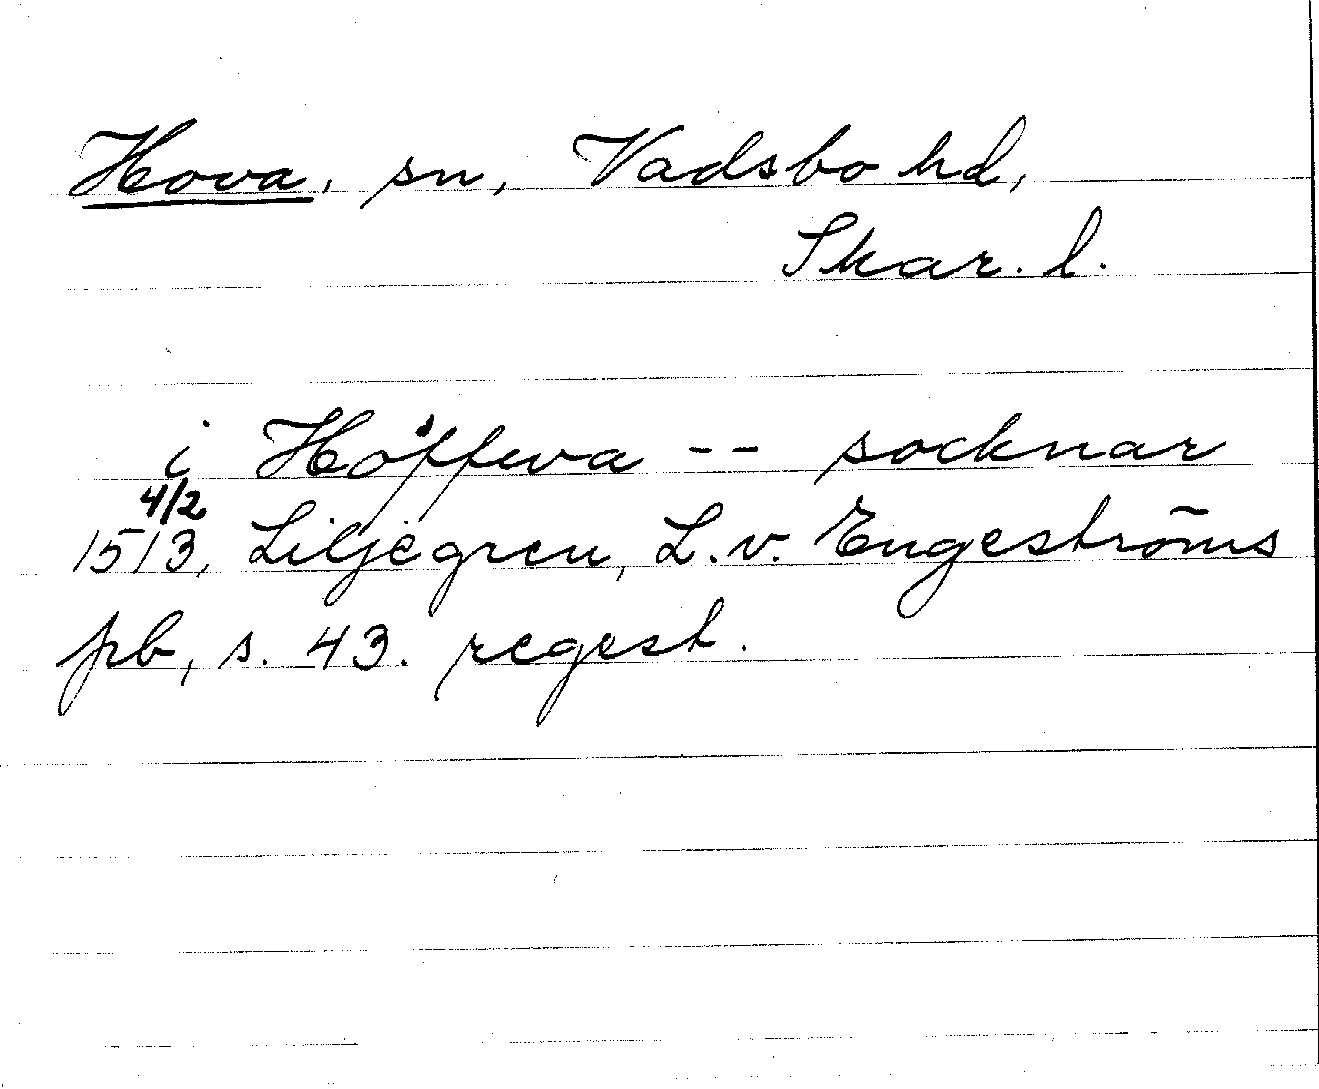 Hova, sn, Vadsbo hd,
Skar. l.
i Höffwa -- socknar
4/2
1513, Liljegren, L. v. Engeströms
pb, s. 43. regest.